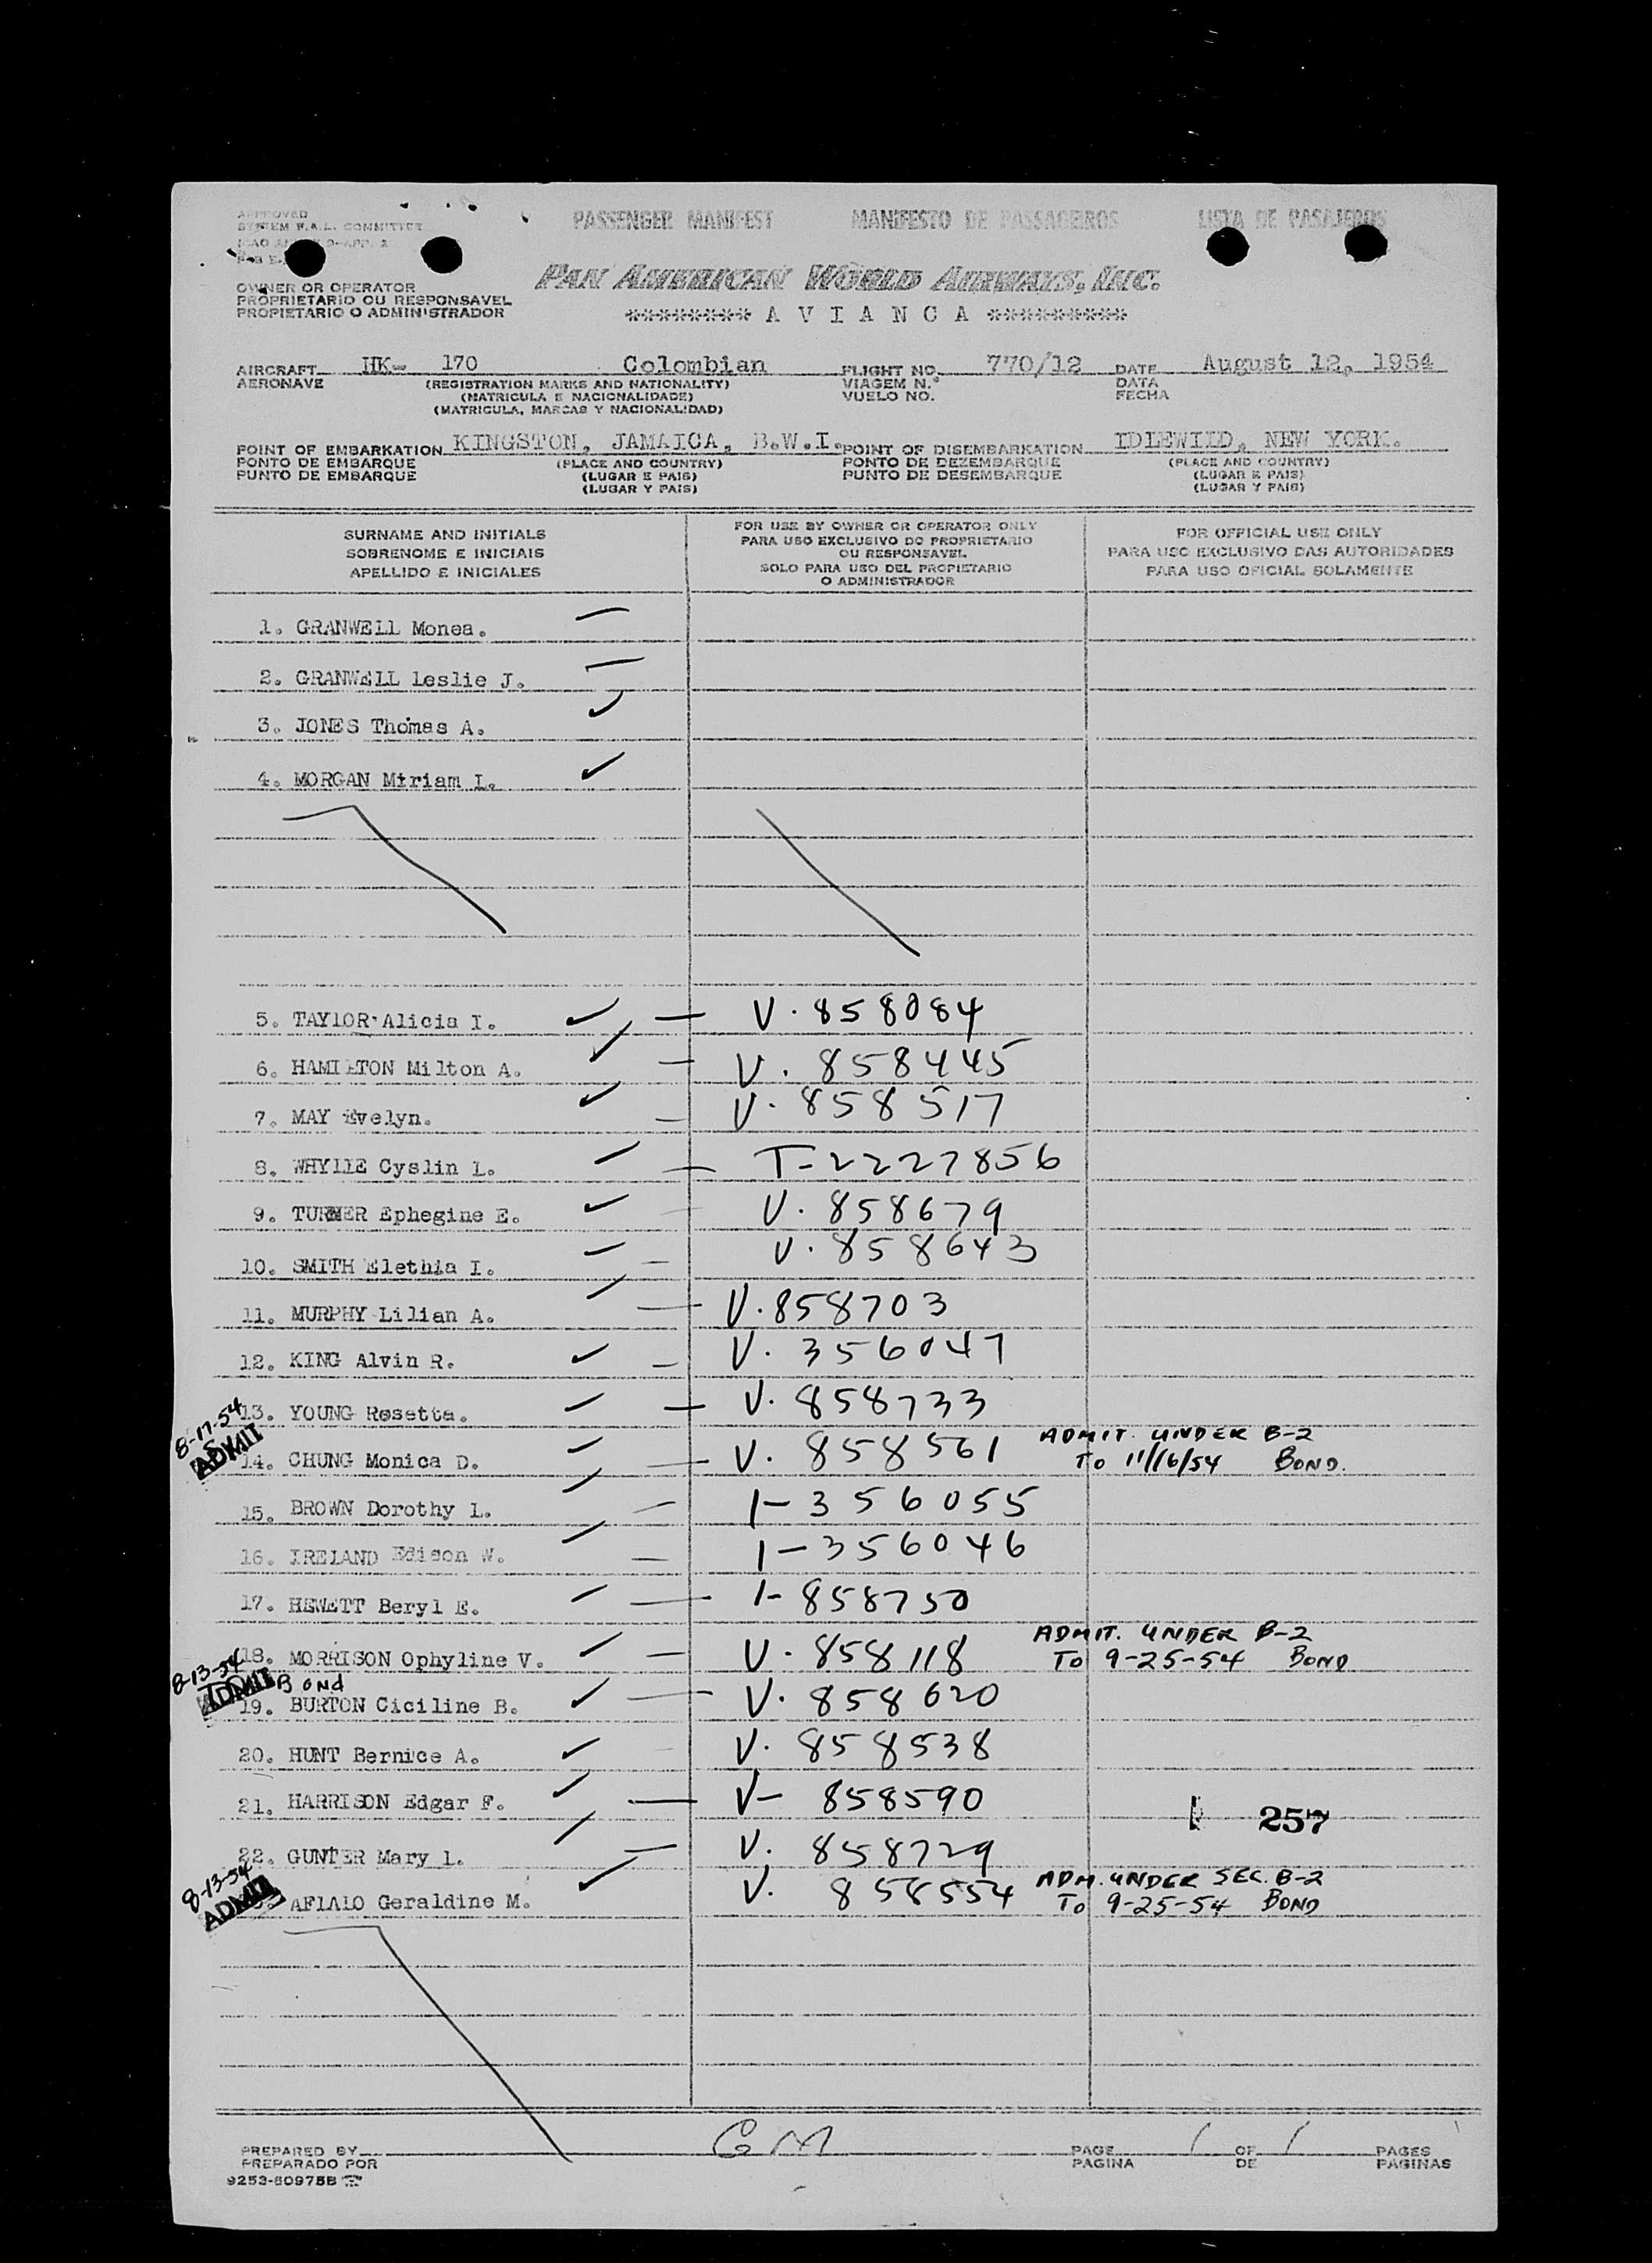 APPROVED
SYSTEM F.A.L. COMMITTEE
PASSENGER MANIFEST MANIFESTO DE PASSAGEIROS LISTA DE PASAJEROS
OWNER OR OPERATOR
PROPRIETARIO OU RESPONSAVEL
PROPIETARIO O ADMINISTRADOR
PAN AMERICAN WORLD AIRWAYS, INC.
******** A V I A N C A *********
AIRCRAFT HK- 170 Colombian FLIGHT NO. 770/12 DATE August 12, 1954
AERONAVE (REGISTRATION MARKS AND NATIONALITY) VIAGEM N.º DATA
(MATRICULA E NACIONALIDADE) VUELO NO. FECHA
(MATRICULA, MARCAS Y NACIONALIDAD)
POINT OF EMBARKATION KINGSTON, JAMAICA, B.W.I. POINT OF DISEMBARKATION IDLEWILD, NEW YORK.
PONTO DE EMBARQUE (PLACE AND COUNTRY) PONTO DE DEZEMBARQUE (PLACE AND COUNTRY)
PUNTO DE EMBARQUE (LUGAR E PAIS) PUNTO DE DESEMBARQUE (LUGAR E PAIS)
(LUGAR Y PAIS) (LUGAR Y PAIS)
SURNAME AND INITIALS
SOBRENOME E INICIAIS
APELLIDO E INICIALES
FOR USE BY OWNER OR OPERATOR ONLY
PARA USO EXCLUSIVO DO PROPRIETARIO
OU RESPONSAVEL
SOLO PARA USO DEL PROPIETARIO
O ADMINISTRADOR
FOR OFFICIAL USE ONLY
PARA USO EXCLUSIVO DAS AUTORIDADES
PARA USO OFICIAL SOLAMENTE
1. GRANWELL Monea.
2. GRANWELL Leslie J.
3. JONES Thomas A.
4. MORGAN Miriam L.
5. TAYLOR Alicia I. V. 858084
6. HAMILTON Milton A. V. 858445
7. MAY Evelyn. V. 858517
8. WHYLIE Cyslin L. T-2227856
9. TURNER Ephegine E. V. 858679
10. SMITH Elethia I. V. 858643
11. MURPHY Lilian A. V. 858703
12. KING Alvin R. V. 356047
8-17-54 13. YOUNG Rosetta. V. 858733
ADMIT 14. CHUNG Monica D. V. 858561 ADMIT. UNDER B-2
To 11/16/54 BOND.
15. BROWN Dorothy L. 1-356055
16. IRELAND Edison W. 1-356046
17. HEWETT Beryl E. 1-858750
8-13-54 18. MORRISON Ophyline V. V. 858118 ADMIT. UNDER B-2
To 9-25-54 BOND
ADMIT Bond
19. BURTON Ciciline B. V. 858620
20. HUNT Bernice A. V. 858538
21. HARRISON Edgar F. V- 858590 257
22. GUNTER Mary L. V. 858729
8-13-54 ADMIT AFLALO Geraldine M. V. 858554 ADM. UNDER SEC. B-2
To 9-25-54 BOND
PREPARED BY GM PAGE 1 OF 1 PAGES
PREPARADO POR PAGINA DE PAGINAS
9253-60975B